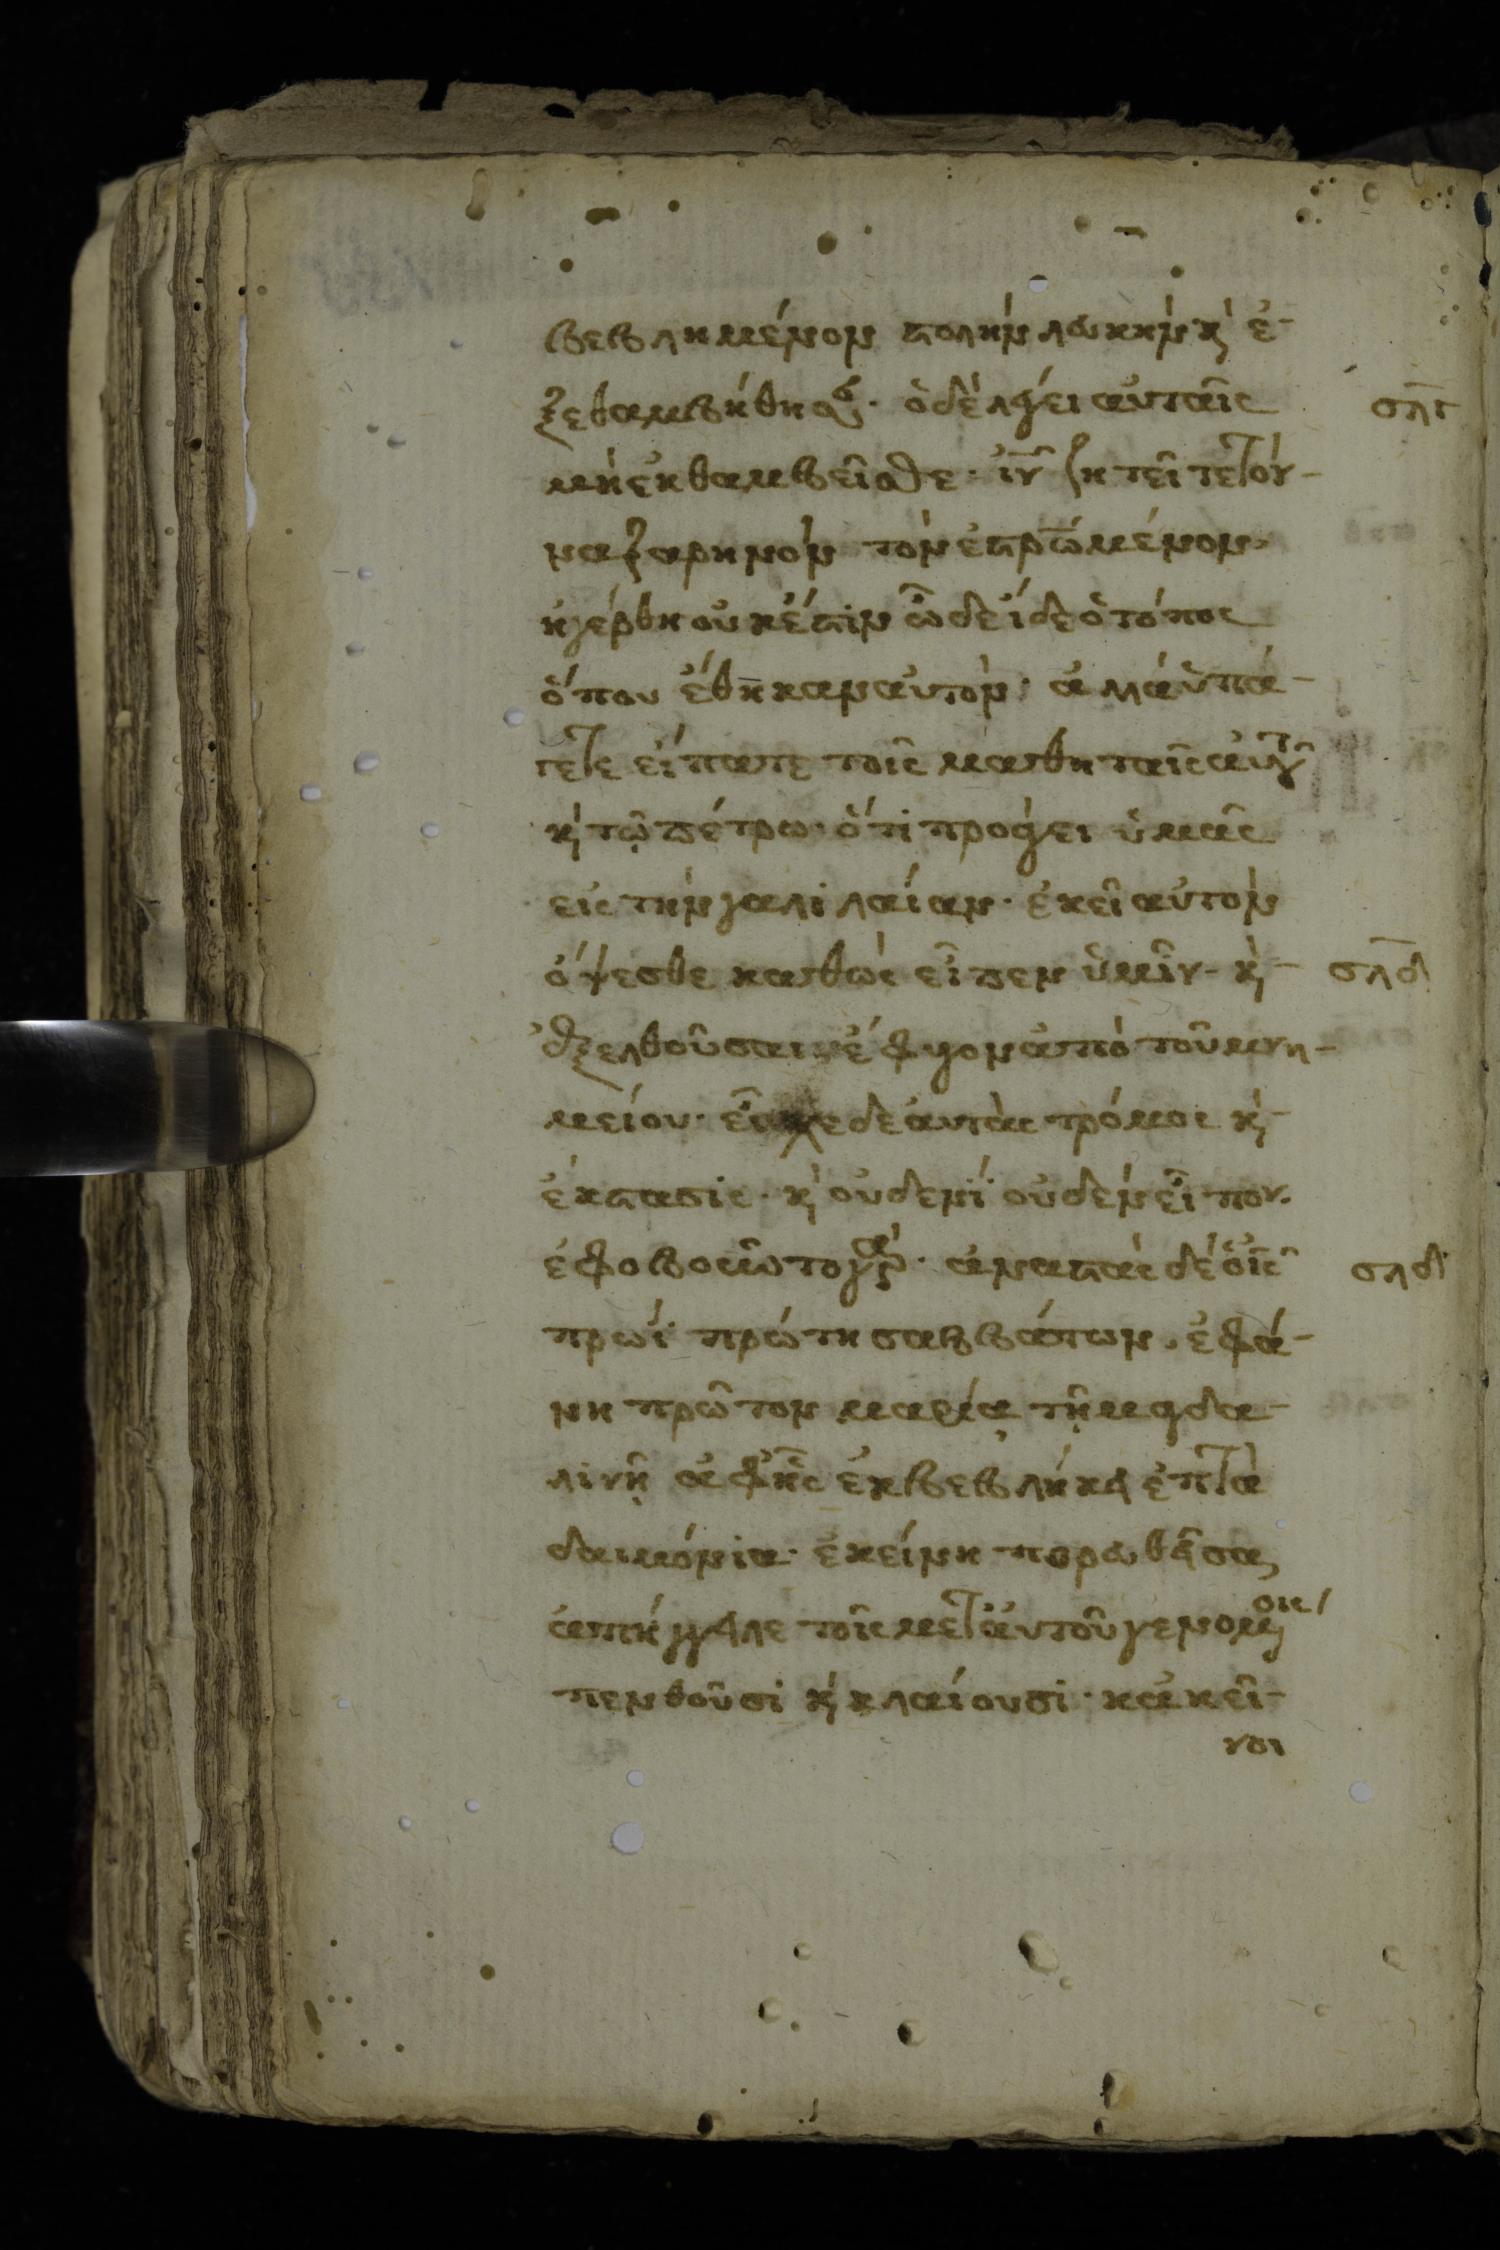 βεβλημένον στολὴν λευκήν· κ(αὶ) ἐ-
ξεθαμβήθησαν· ὁ δὲ λέγει αὐταῖς σλγ
μὴ ἐκθαμβεῖσθε· ἰν̅ ζητεῖτε τὸν
ναζαρηνὸν τὸν ἐστρωμένον·
ἠγέρθη οὐκ ἔστιν ὧδε ἴδε ὁ τόπος
ὅπου ἔθηκαν αὐτόν· ἀλλὰ ὑπά-
γετε εἴπατε τοῖς μαθηταῖς αὐτοῦ
κ(αὶ) τῷ πέτρω· ὅτι προάγει ὑμᾶς
εἰς τὴν γαλιλαίαν· ἐκεῖ αὐτὸν
ὄψεσθε καθὼς εἶπεν ὑμῖν· κ(αὶ) σλδ
ἐξελθοῦσαι ἔφυγον ἀπὸ τοῦ μνη-
μείου· εἶχε δὲ αὐτὰς τρόμος κ(αὶ)
ἔκστασις· κ(αὶ) οὐδενὶ οὐδὲν εἶπον.
ἐφοβοῦντο γάρ· ἀναστὰς δὲ ὁ ις̅ σλδ
πρωῒ πρώτη σαββάτων, ἐφά-
νη πρῶτον μαρία τῆ μαγδα-
λινῆ ἀφ' ἧς ἐκβεβλήκει ἑπτὰ
δαιμόνια· ἐκείνη πορευθεῖσα
ἀπήγγειλε τοῖς μετ' αὐτοῦ γενομένοις
πενθοῦσι κ(αὶ) κλαίουσι· κἀκεῖ-
νοι